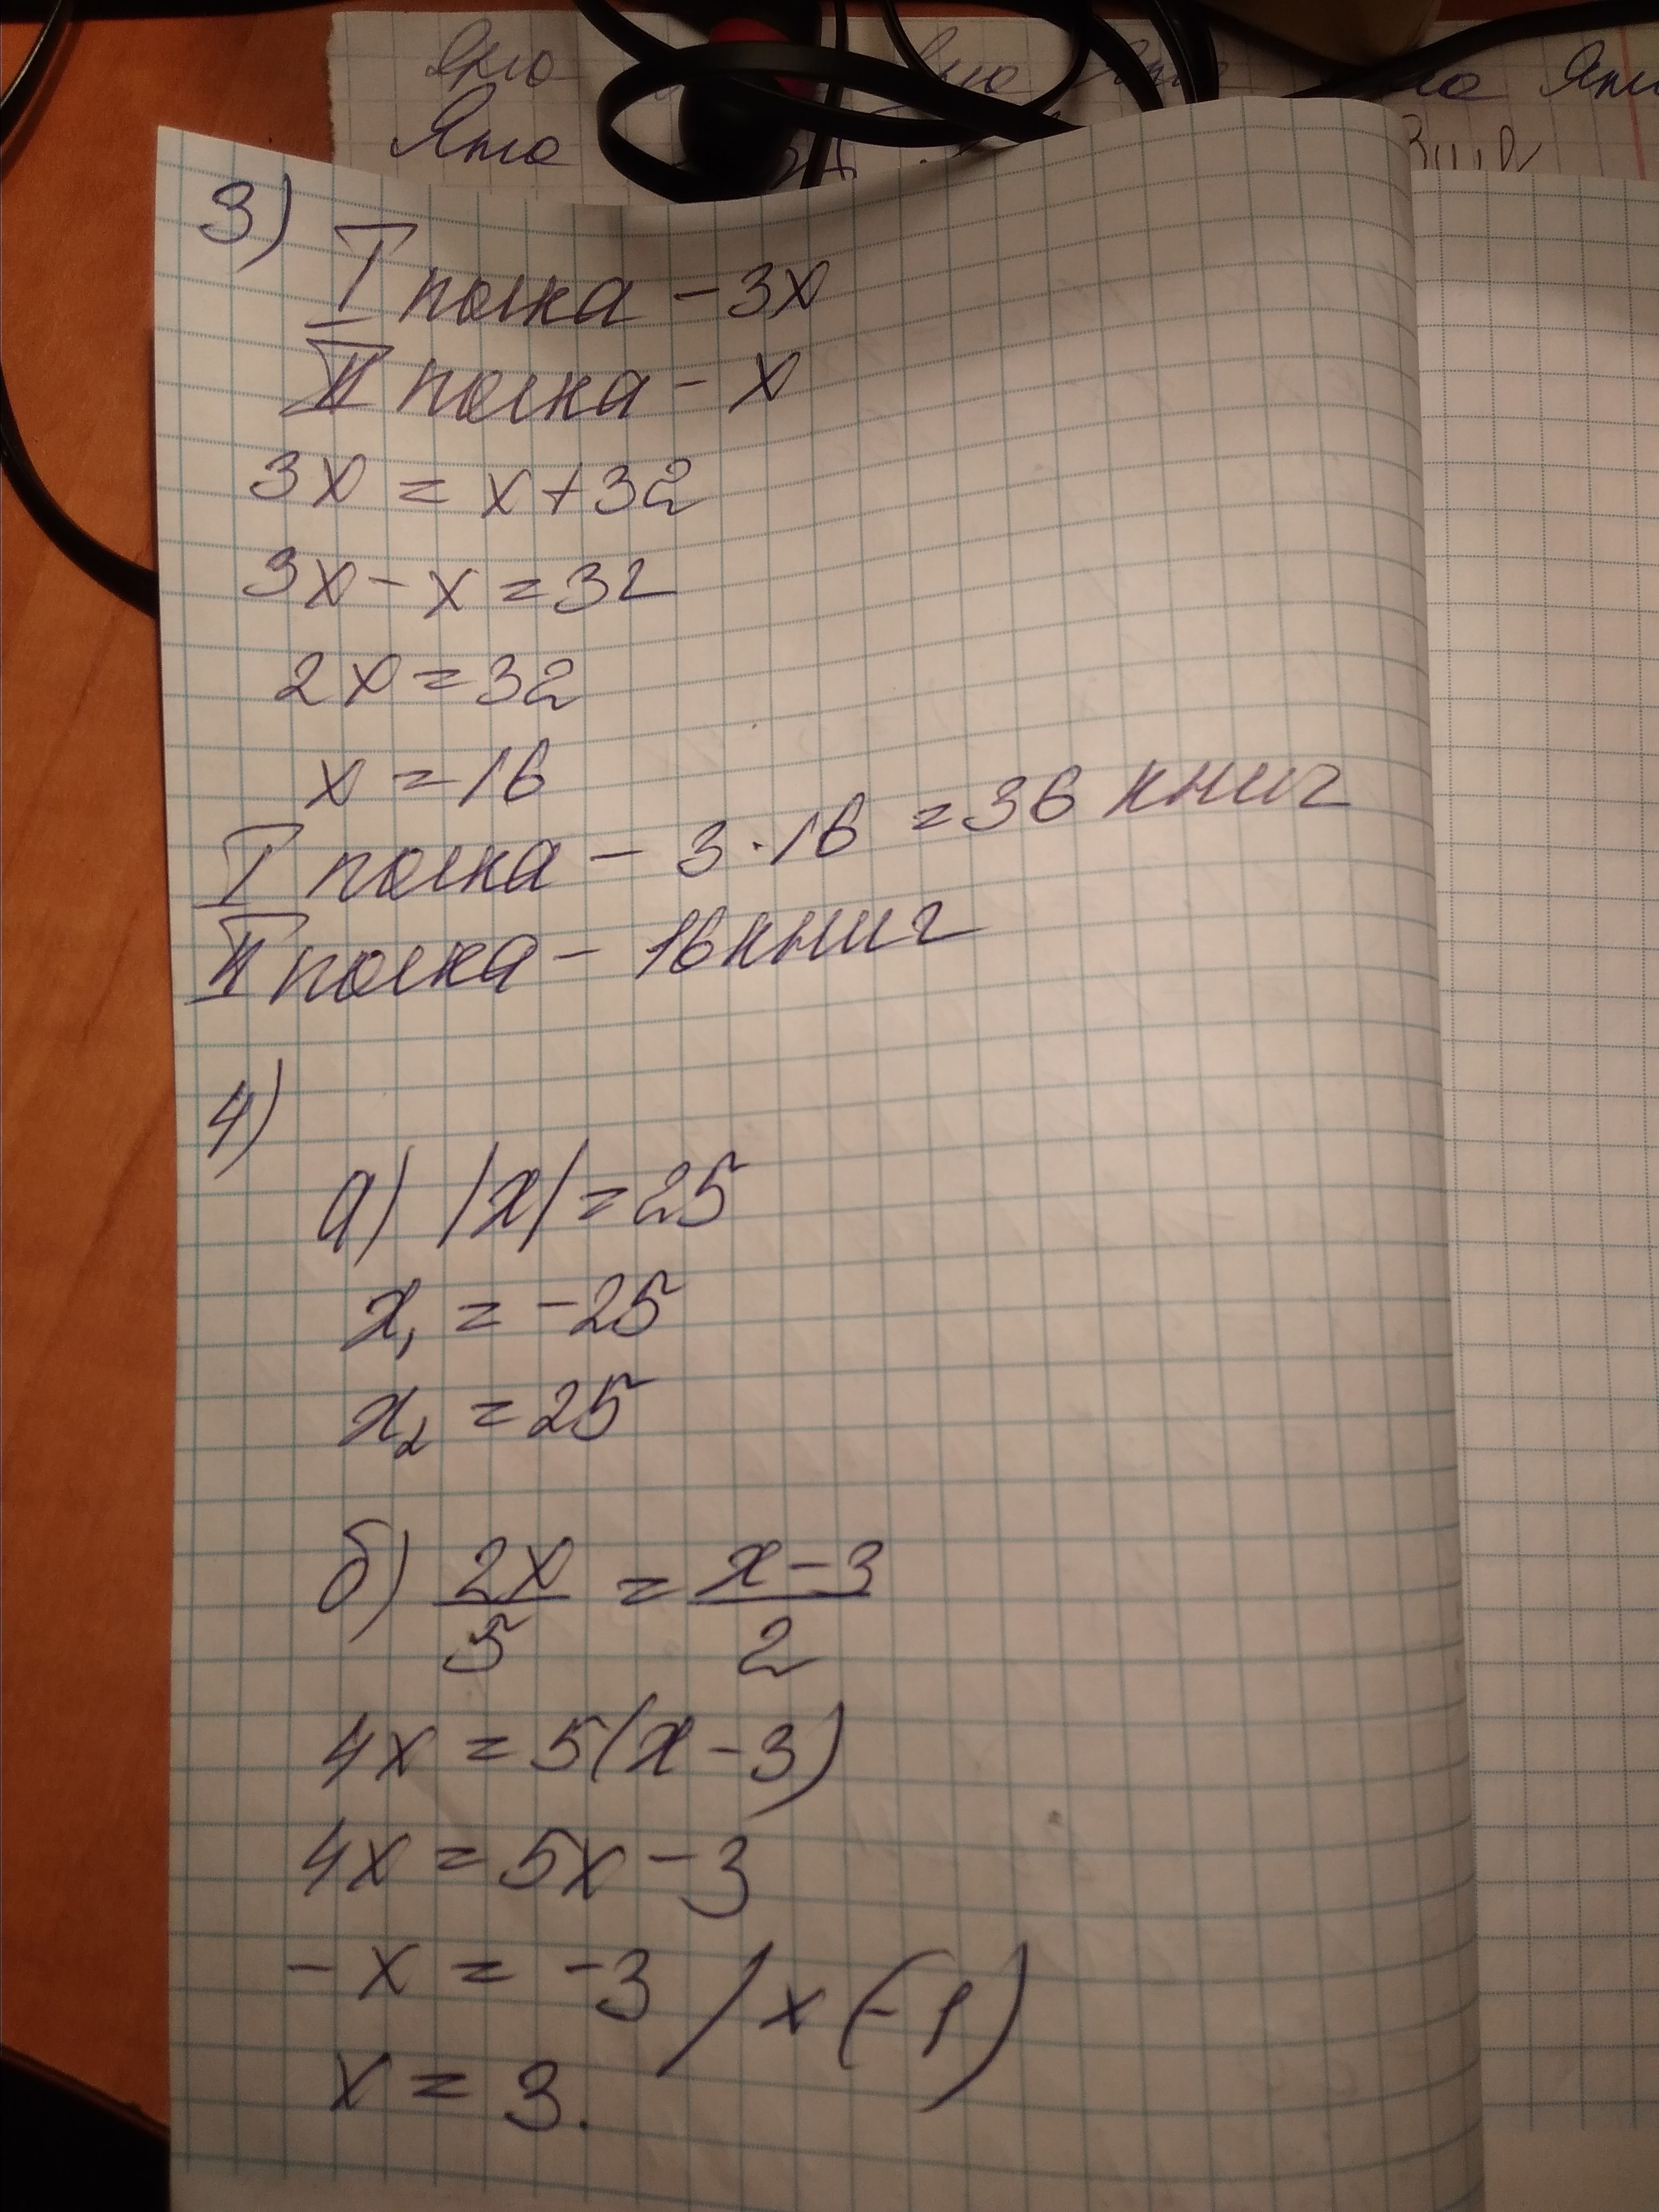 Ято Ято
Ято
3)
I полка - 3x
II полка - x
3x = x+32
3x - x = 32
2x = 32
x = 16
I полка - 3·16 = 36 книг
II полка - 16 книг
4)
а) |x| = 25
x₁ = -25
x₂ = 25
б) 2x/5 = x-3/2
4x = 5(x-3)
4x = 5x - 3
-x = -3 / x (-1)
x = 3.